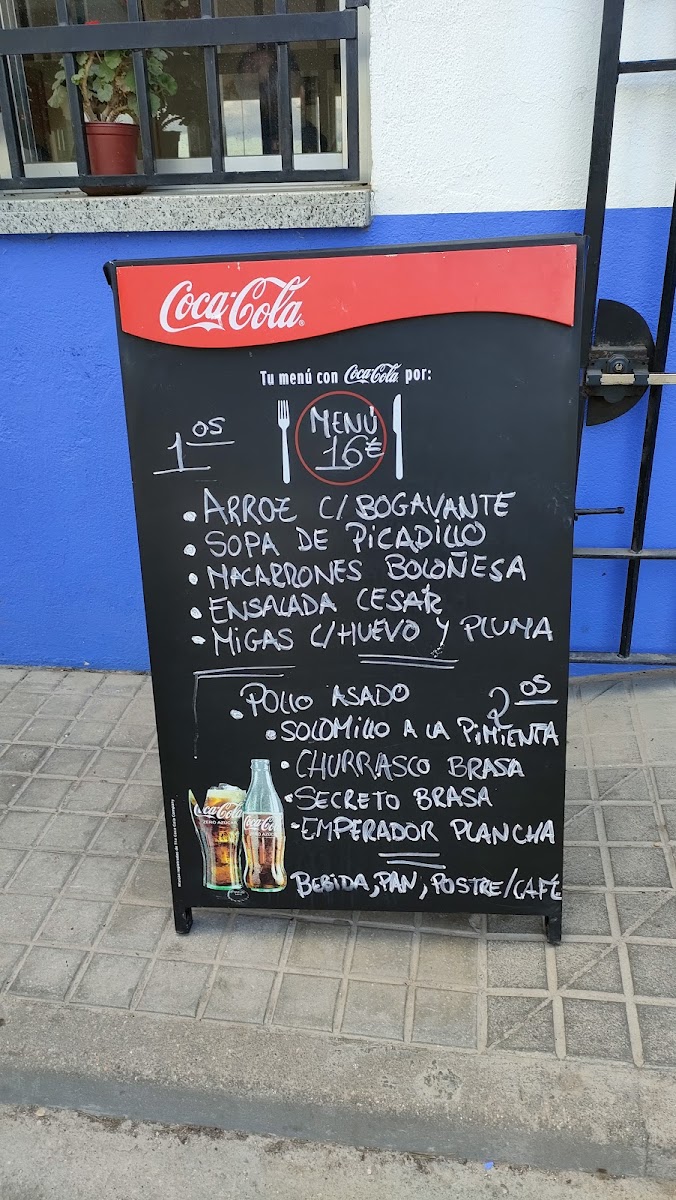 Coca-Cola
Tu menú con Coca-Cola por:
1os
MENÚ
16€
• ARROZ C/BOGAVANTE
• SOPA DE PICADILLO
• MACARRONES BOLOÑESA
• ENSALADA CESAR
• MIGAS C/HUEVO Y PLUMA
2os
• POLLO ASADO
• SOLOMILLO A LA PIMIENTA
• CHURRASCO BRASA
• SECRETO BRASA
• EMPERADOR PLANCHA
Coca-Cola
ZERO AZÚCAR
Coca-Cola
ZERO AZÚCAR
BEBIDA, PAN, POSTRE/CAFÉ